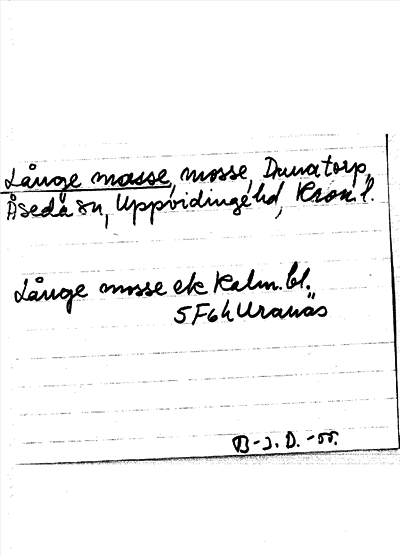 Långe mosse, mosse, Dunatorp,
Åseda sn, Uppvidinge hd, Kron. l.
Långe mosse ek Kalm. bl.
5F6h Uranäs
B-J. D. -55.